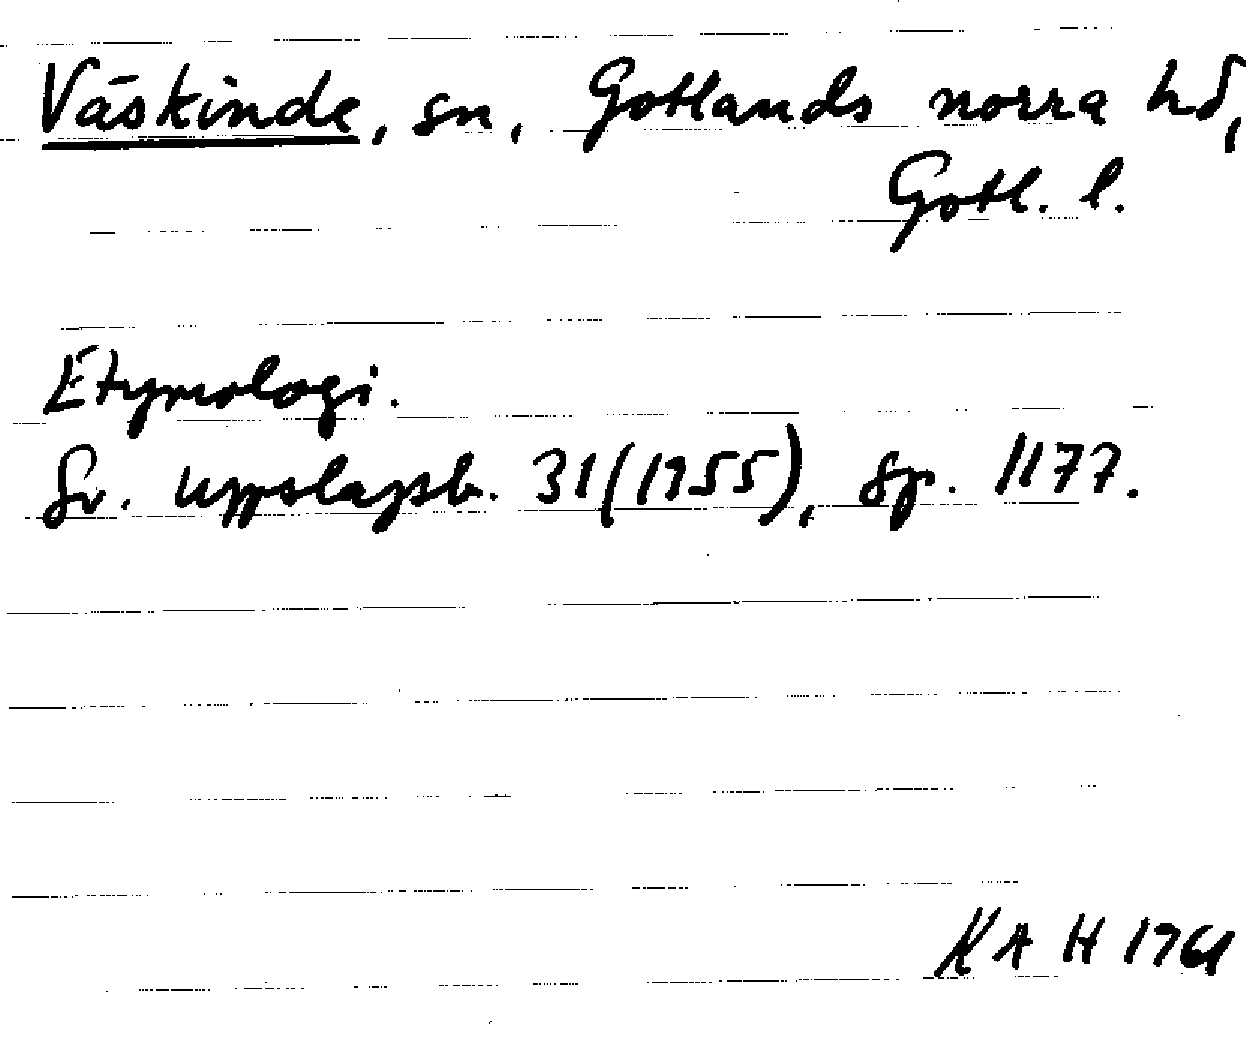 Väskinde, sn, Gotlands norra hd,
Gotl. l.
Etymologi.
Sv. uppslagsb. 31(1955), sp. 1177.
KAH 1961